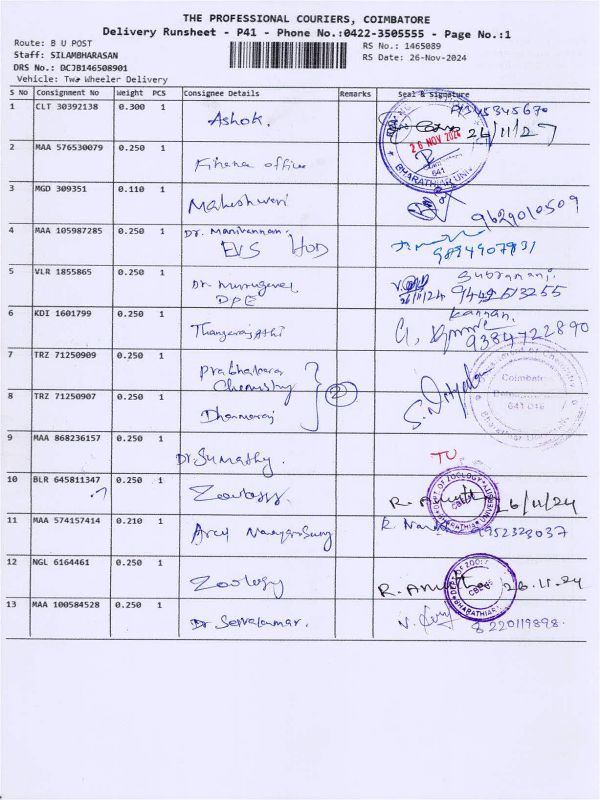 THE PROFESSIONAL COURIERS, COIMBATORE
Delivery Runsheet - P41 - Phone No.:0422-3505555 - Page No.:1
Route: B U POST
RS No.: 1465089
Staff: SILAMBHARASAN
RS Date: 26-Nov-2024
DRS No.: DCJB146508901
Vehicle: Two Wheeler Delivery
S No Consignment No Weight PCS Consignee Details Remarks Seal & Signature
1 CLT 30392138 0.300 1 Ashok.
20 NOV 2024
641
BHARATHIAR UNIV
2 MAA 576530079 0.250 1 Finance office
3 MGD 309351 0.110 1 Maheshwari 9629010509
4 MAA 105987285 0.250 1 Dr. Manivannan.
EVS HOD 9894907931
5 VLR 1855865 0.250 1 Dr. Murugavel
DPE
26/11/24
6 KDI 1601799 0.250 1 Kannan.
9384722890
7 TRZ 71250909 0.250 1 Prabhakara
Chemistry
2
Coimbatore
641 046
8 TRZ 71250907 0.250 1 Dharmaraj
9 MAA 868236157 0.250 1 Dr. Sumathy. TU
10 BLR 645811347 0.250 1 Zoology 26/11/24
DEPT OF ZOOLOGY
BHARATHIAR UNIVERSITY
11 MAA 574157414 0.210 1 9952323037
12 NGL 6164461 0.250 1 Zoology 26.11.24
BHARATHIAR
13 MAA 100584528 0.250 1 Dr Selvakumar. 8220119898.